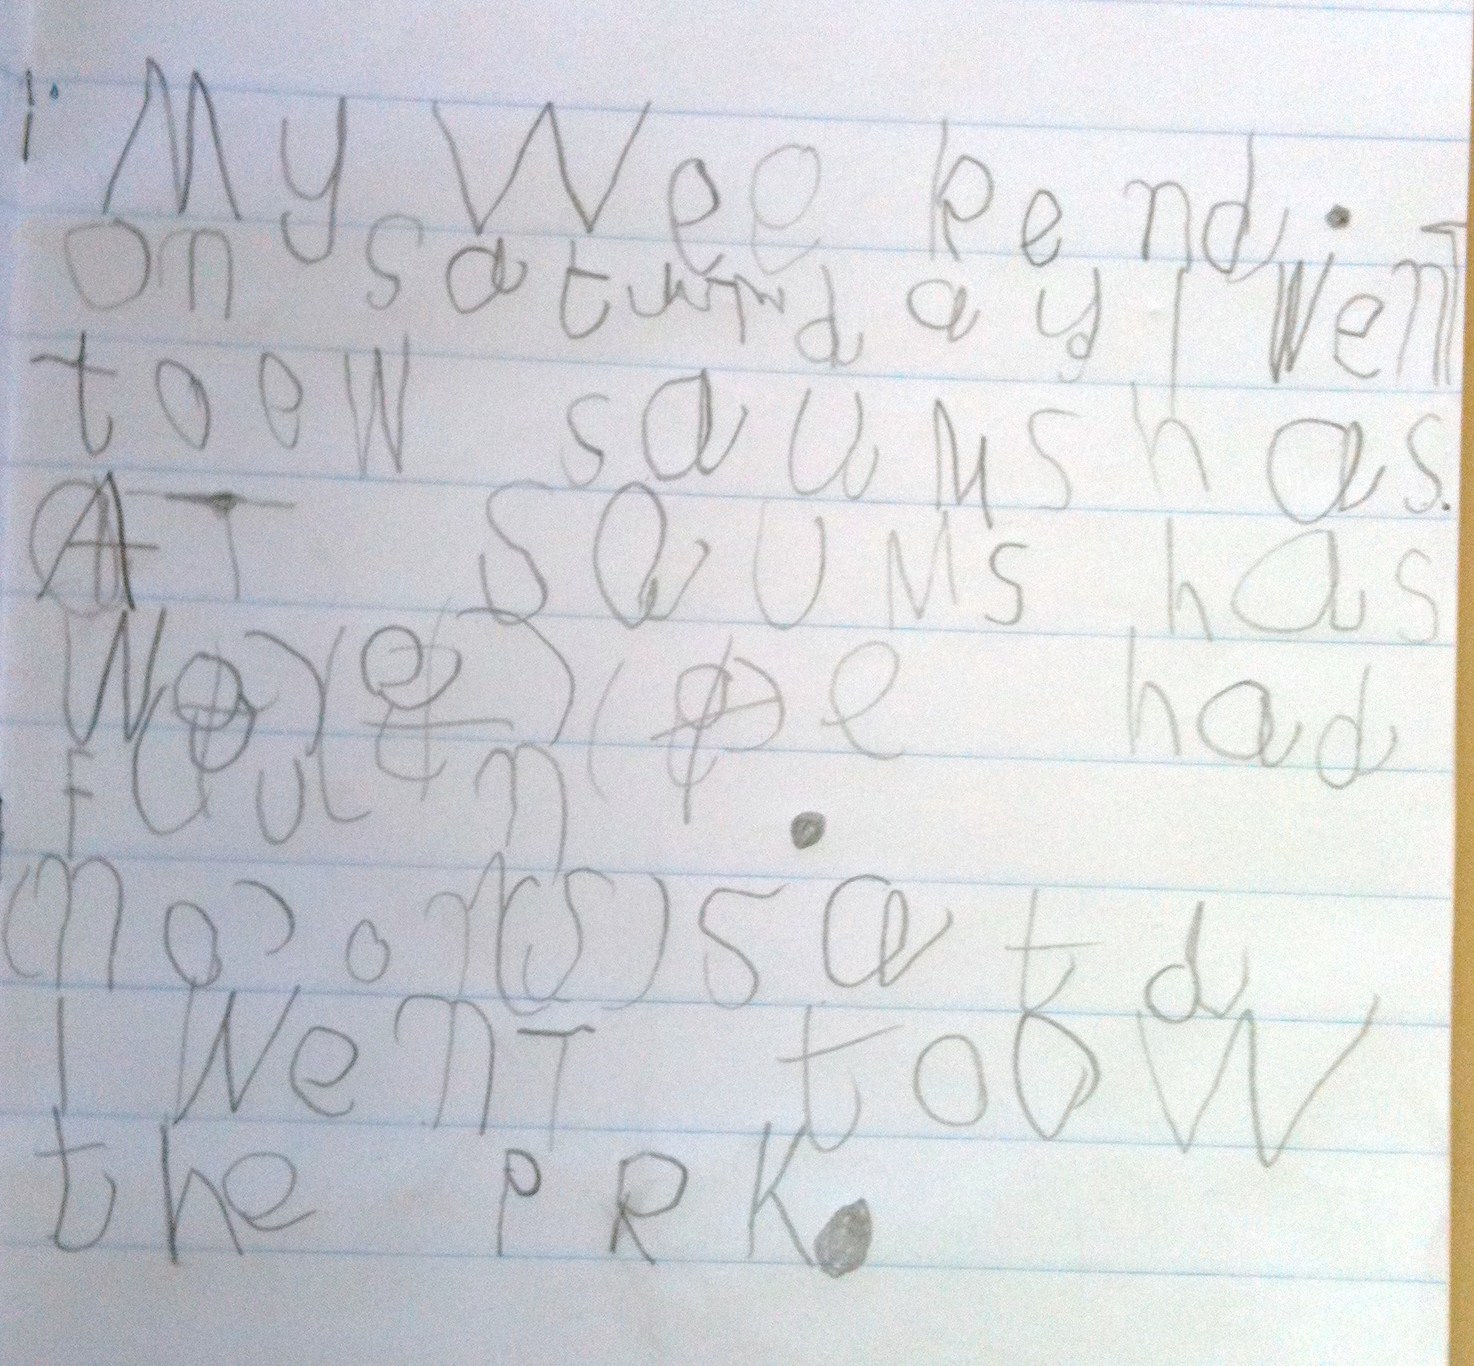 My Weekend.
on saturday I WenT
toew saums has.
AT saums has
We had
fun.
on satd
I WenT toow
the PRK.